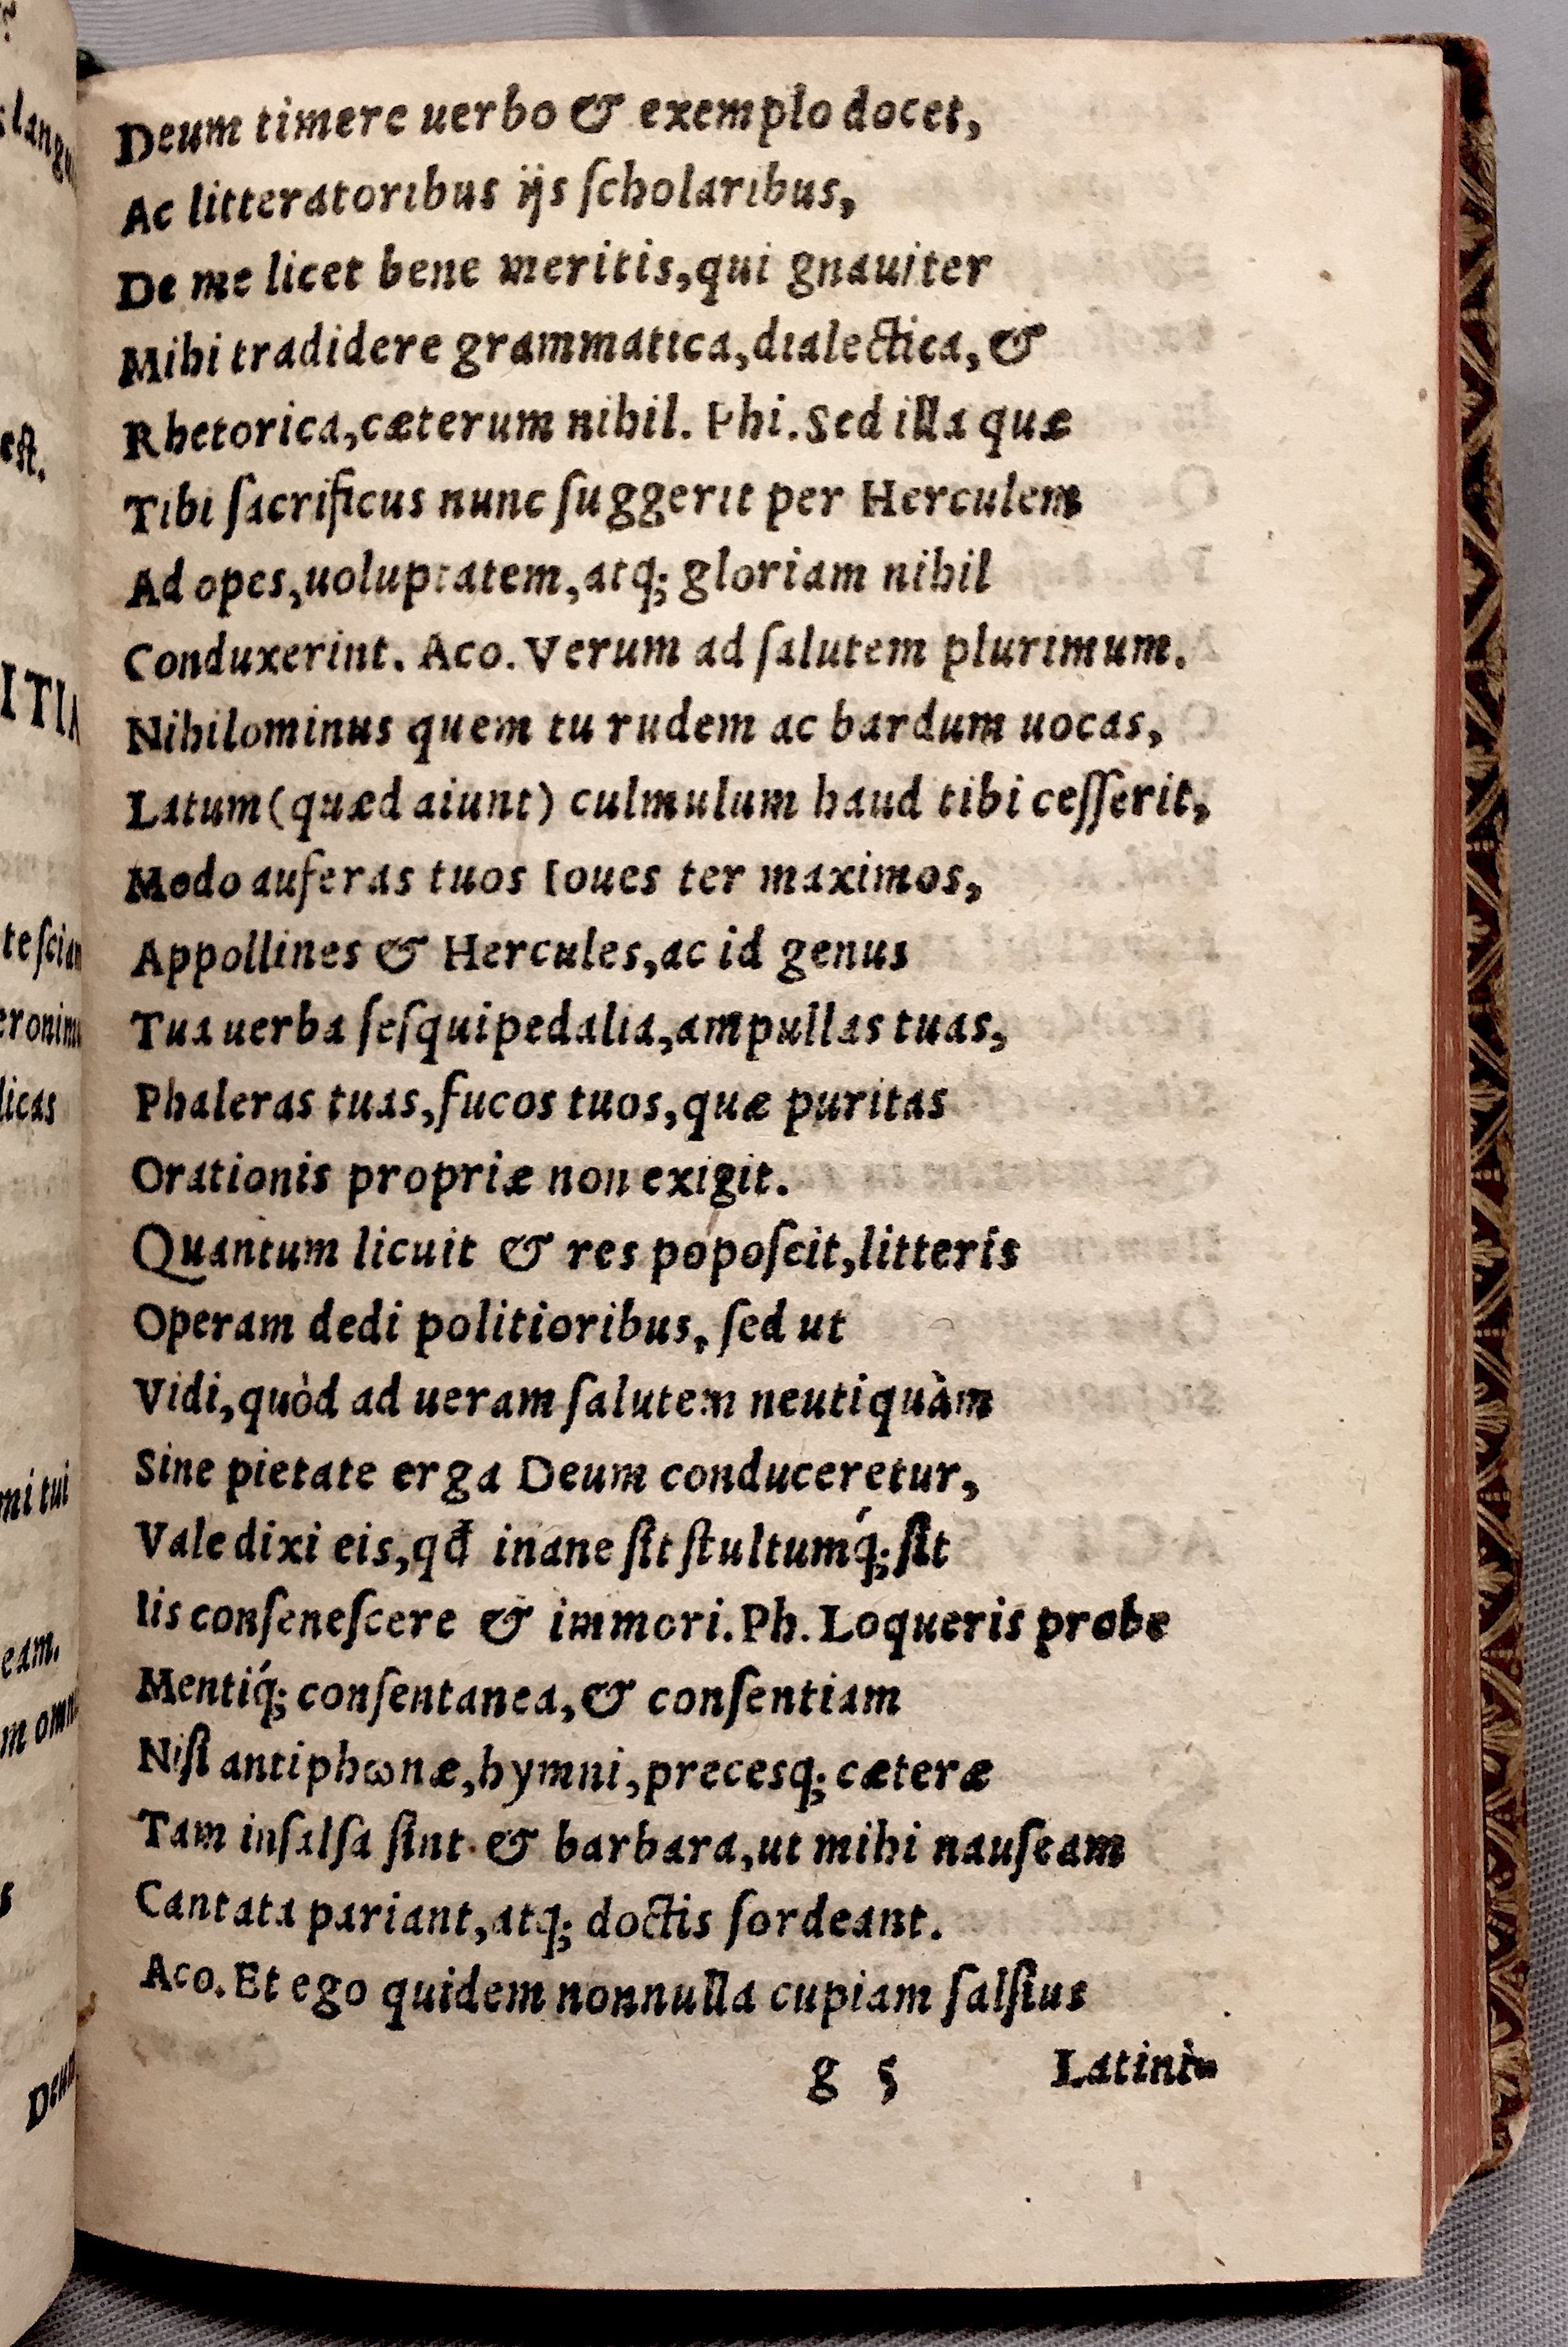 Deum timere uerbo & exemplo docet,
Ac litteratoribus ijs ſcholaribus,
De me licet bene meritis,qui gnauiter
Mihi tradidere grammatica,dialectica, &
Rhetorica,cæterum nihil. Phi.Sed illa quæ
Tibi ſacrificus nunc ſuggerit per Herculem
Ad opes,uoluptatem,atq; gloriam nihil
Conduxerint. Aco. Verum ad ſalutem plurimum.
Nihilominus quem tu rudem ac bardum uocas,
Latum(quæd aiunt) culmulum haud tibi ceſſerit,
Modo auferas tuos Ioues ter maximos,
Appollines & Hercules,ac id genus
Tua uerba ſeſquipedalia,ampullas tuas,
Phaleras tuas,fucos tuos,quæ puritas
Orationis propriæ non exigit.
Quantum licuit & res popoſcit,litteris
Operam dedi politioribus, ſed ut
Vidi,quòd ad ueram ſalutem neutiquàm
Sine pietate erga Deum conduceretur,
Vale dixi eis,qđ inane ſit ſtultumq́; ſit
Iis conſeneſcere & immori.Ph.Loqueris probe
Mentiq́; conſentanea,& conſentiam
Niſi antiphωnæ,hymni,precesq; cæteræ
Tam inſalſa ſint & barbara,ut mihi nauſeam
Cantata pariant,atq; doctis ſordeant.
Aco.Et ego quidem nonnulla cupiam ſalſius
g 5 Latini-
est.
licas
mi tui
eam.